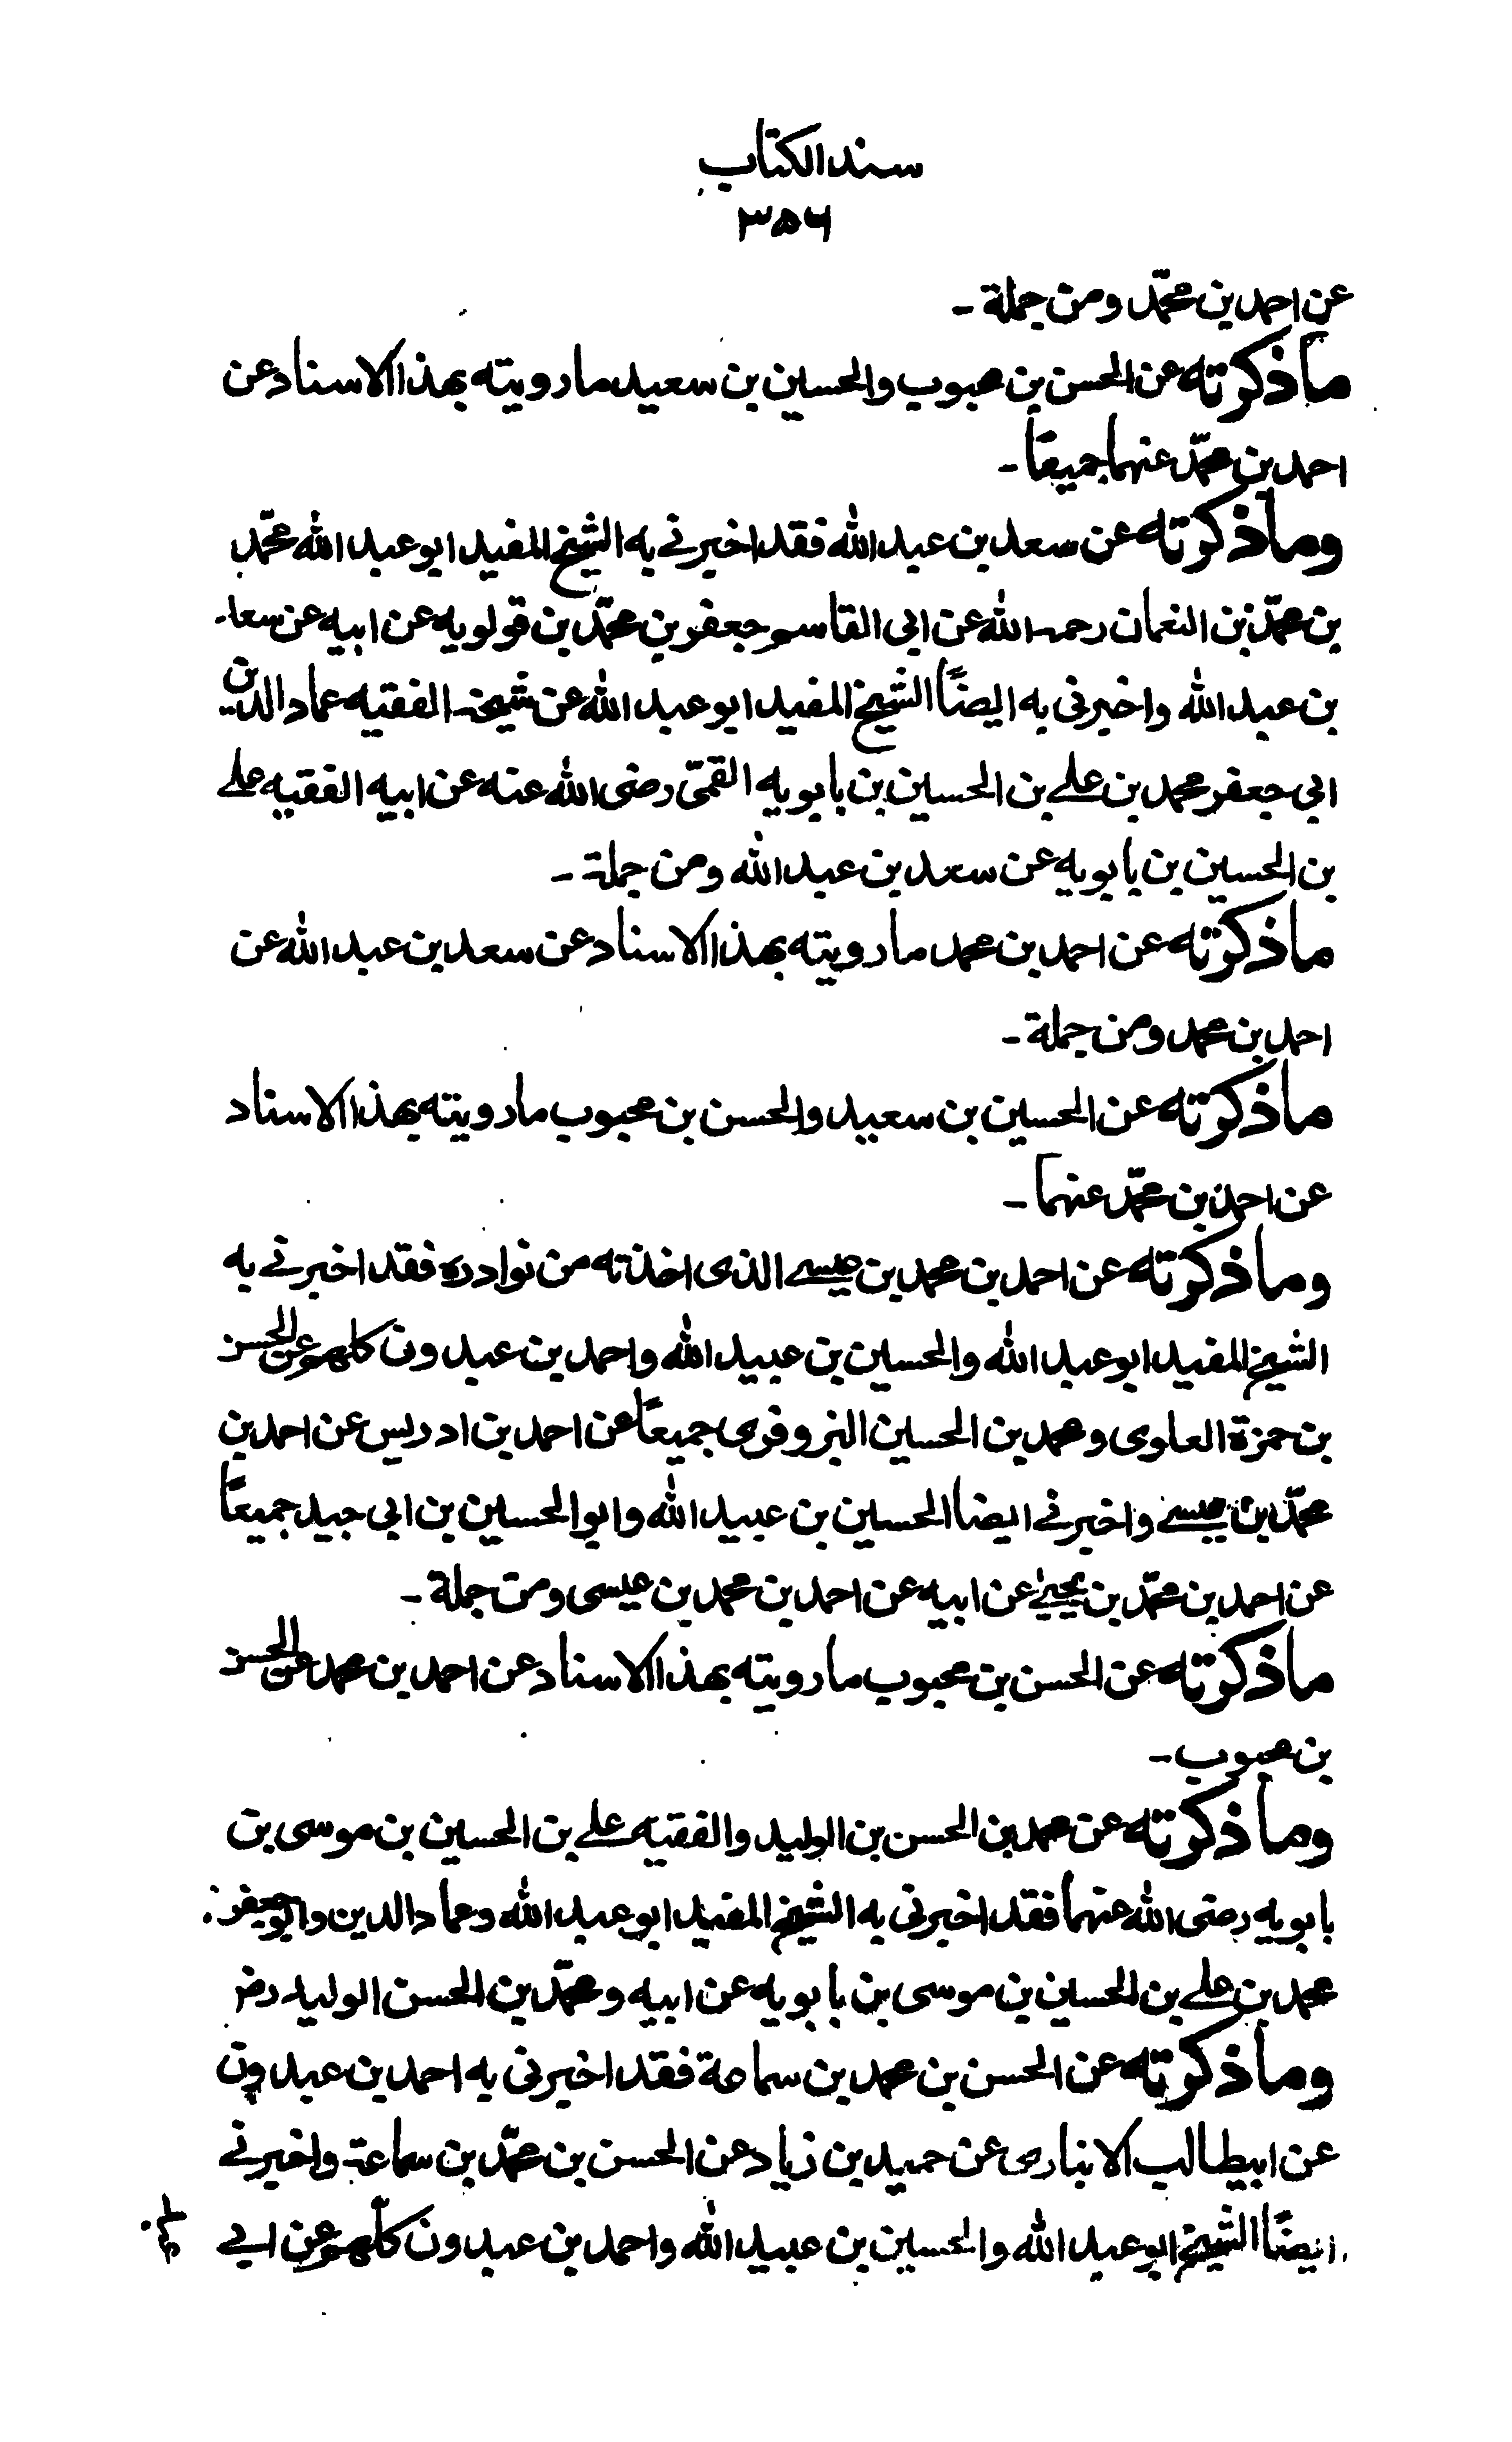 سند الكتاب
٣٥٦
عن احمد بن محمّد ومن جملة ـ
ما ذكرته عن الحسن بن محبوب والحسين بن سعيد ما رويته بهذا الاسناد عن
احمد بن محمّد عنهما جميعًا ـ
وما ذكرته عن سعد بن عبد الله فقد اخبرنے به الشيخ المفيد ابو عبد الله محمّد
بن محمّد بن النعمان رحمه الله عن ابى القاسم جعفر بن محمّد بن قولويه عن ابيه عن سعد
بن عبد الله واخبرنى به ايضًا الشيخ المفيد ابو عبد الله عن شيخه الفقيه عماد الدين
ابى جعفر محمد بن علے بن الحسين بن بابويه القمىّ رضى الله عنه عن ابيه الفقيه علے
بن الحسين بن بابويه عن سعد بن عبد الله ومن جملة ـ
ما ذكرته عن احمد بن محمد ما رويته بهذا الاسناد عن سعد بن عبد الله عن
احمد بن محمد ومن جملة ـ
ما ذكرته عن الحسين بن سعيد والحسن بن محبوب ما رويته بهذا الاسناد
عن احمد بن محمّد عنهما ـ
وما ذكرته عن احمد بن محمد بن عيسے الذى اخذته من نوادره فقد اخبرنے به
الشيخ المفيد ابو عبد الله والحسين بن عبيد الله واحمد بن عبدون كلهم عن الحسن
بن حمزة العلوى ومحمد بن الحسين البزوفرى جميعًا عن احمد بن ادريس عن احمد بن
محمّد بن عيسے واخبرنے ايضا الحسين بن عبيد الله وابو الحسين بن ابى جيد جميعًا
عن احمد بن محمّد بن يحيےٰ عن ابيه عن احمد بن محمد بن عيسى ومن جملة ـ
ما ذكرته عن الحسن بن محبوب ما رويته بهذا الاسناد عن احمد بن محمد عن الحسن
بن محبوب ـ
وما ذكرته عن محمد بن الحسن بن الوليد والفقيه علے بن الحسين بن موسى بن
بابويه رضى الله عنهما فقد اخبرنى به الشيخ المفيد ابو عبد الله وعماد الدين وابو جعفر
محمد بن علے بن الحسين بن موسى بن بابويه عن ابيه ومحمّد بن الحسن الوليد رضـ
وما ذكرته عن الحسن بن محمد بن سماعة فقد اخبرنى به احمد بن عبدون
عن ابيطالب الانبارى عن حميد بن زياد عن الحسن بن محمّد بن سماعة واخبرنے
ايضًا الشيخ ابو عبد الله والحسين بن عبيد الله واحمد بن عبدون كلّهم عن ابے